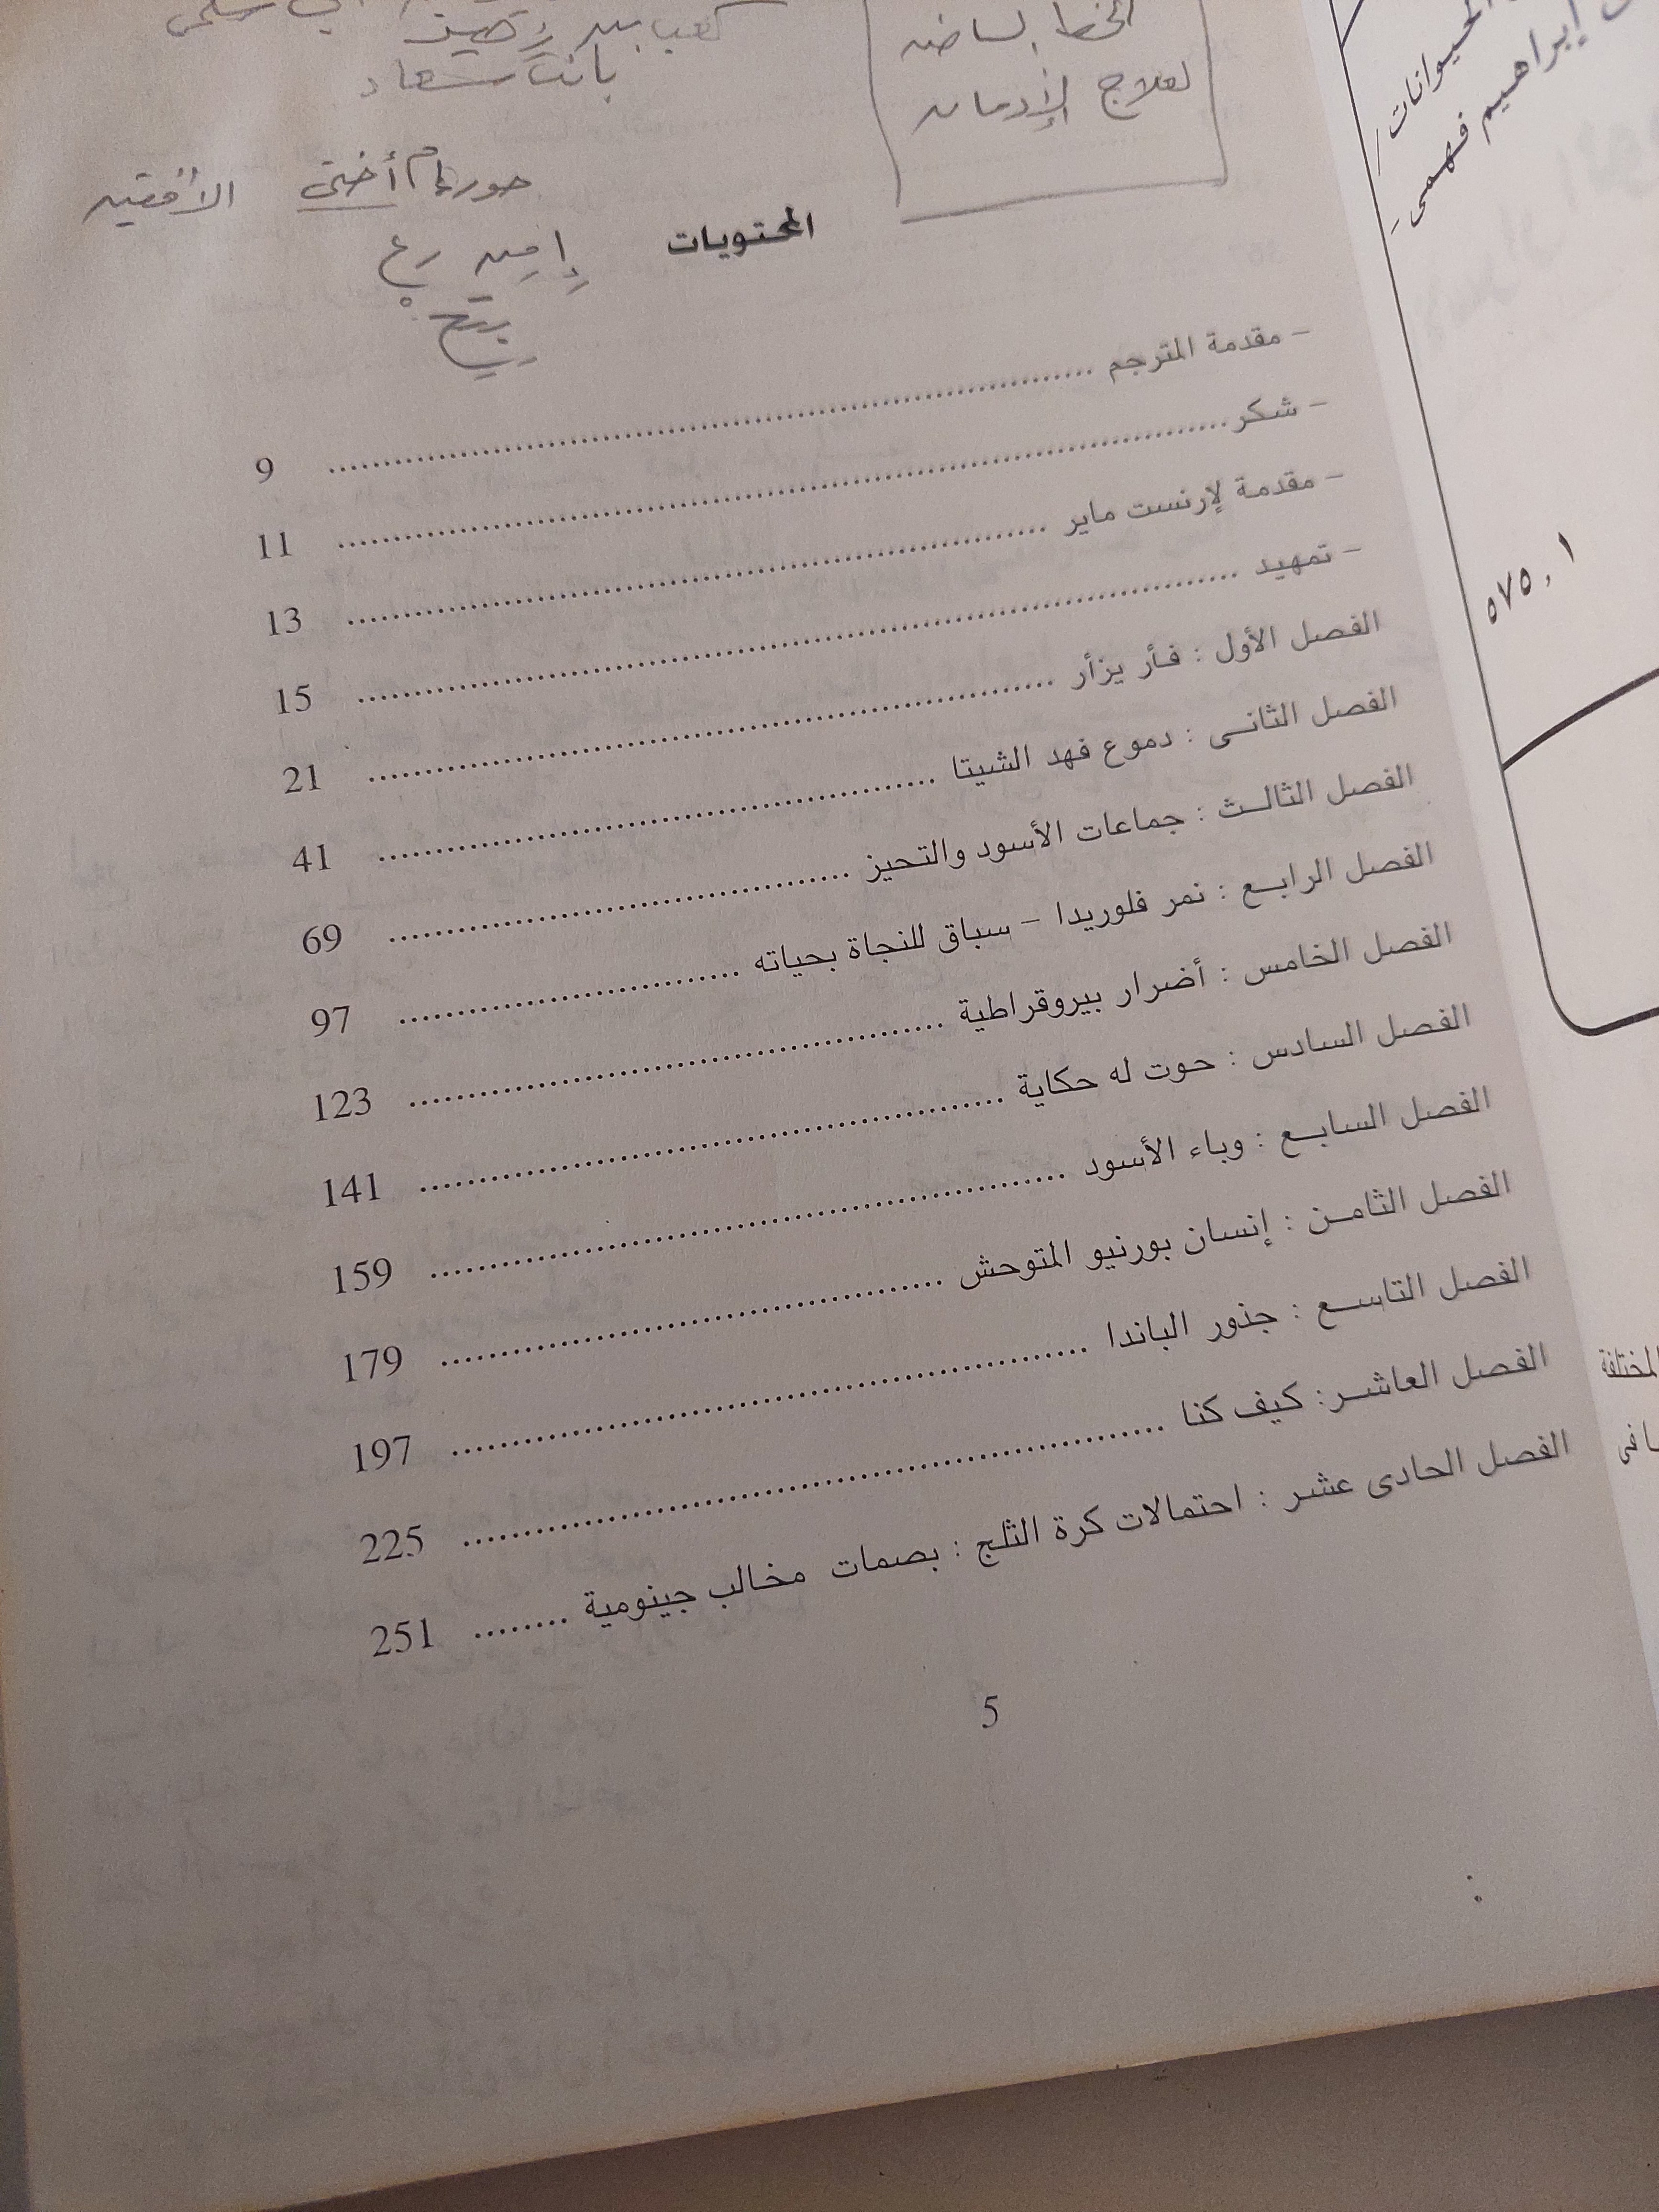 الخط الساخن
لعلاج الإدمان
كعب بن زهير
بانت سعاد
أختى
المحتويات
– مقدمة المترجم ........ 9
– شكر ........ 11
– مقدمة لإرنست ماير ........ 13
– تمهيد ........ 15
الفصل الأول : فأر يزأر ........ 21
الفصل الثانى : دموع فهد الشيتا ........ 41
الفصل الثالث : جماعات الأسود والتحيز ........ 69
الفصل الرابع : نمر فلوريدا – سباق للنجاة بحياته ........ 97
الفصل الخامس : أضرار بيروقراطية ........ 123
الفصل السادس : حوت له حكاية ........ 141
الفصل السابع : وباء الأسود ........ 159
الفصل الثامن : إنسان بورنيو المتوحش ........ 179
الفصل التاسع : جذور الباندا ........ 197
الفصل العاشر: كيف كنا ........ 225
الفصل الحادى عشر : احتمالات كرة الثلج : بصمات مخالب جينومية ........ 251
5
الحيوانات /
إبراهيم فهمى
٥٧٥,١
المختلفة